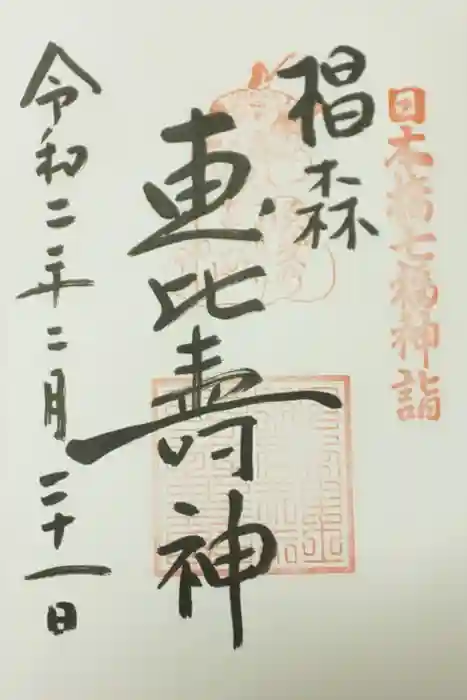 日本橋七福神詣
椙森
恵比寿神
令和二年二月二十一日